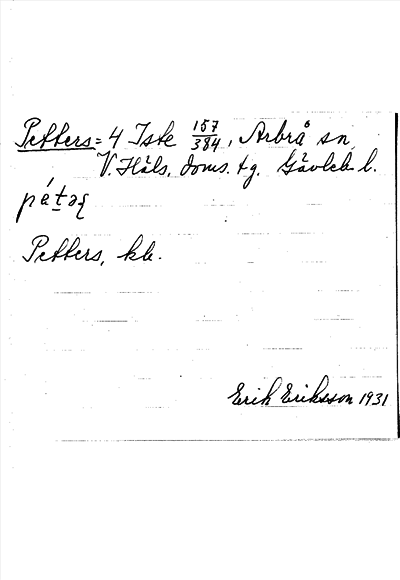 Petters = 4 Iste 157/384, Arbrå sn,
V. Häls. doms. tg. Gävleb. l.
Petters, kb.
Erik Eriksson 1931